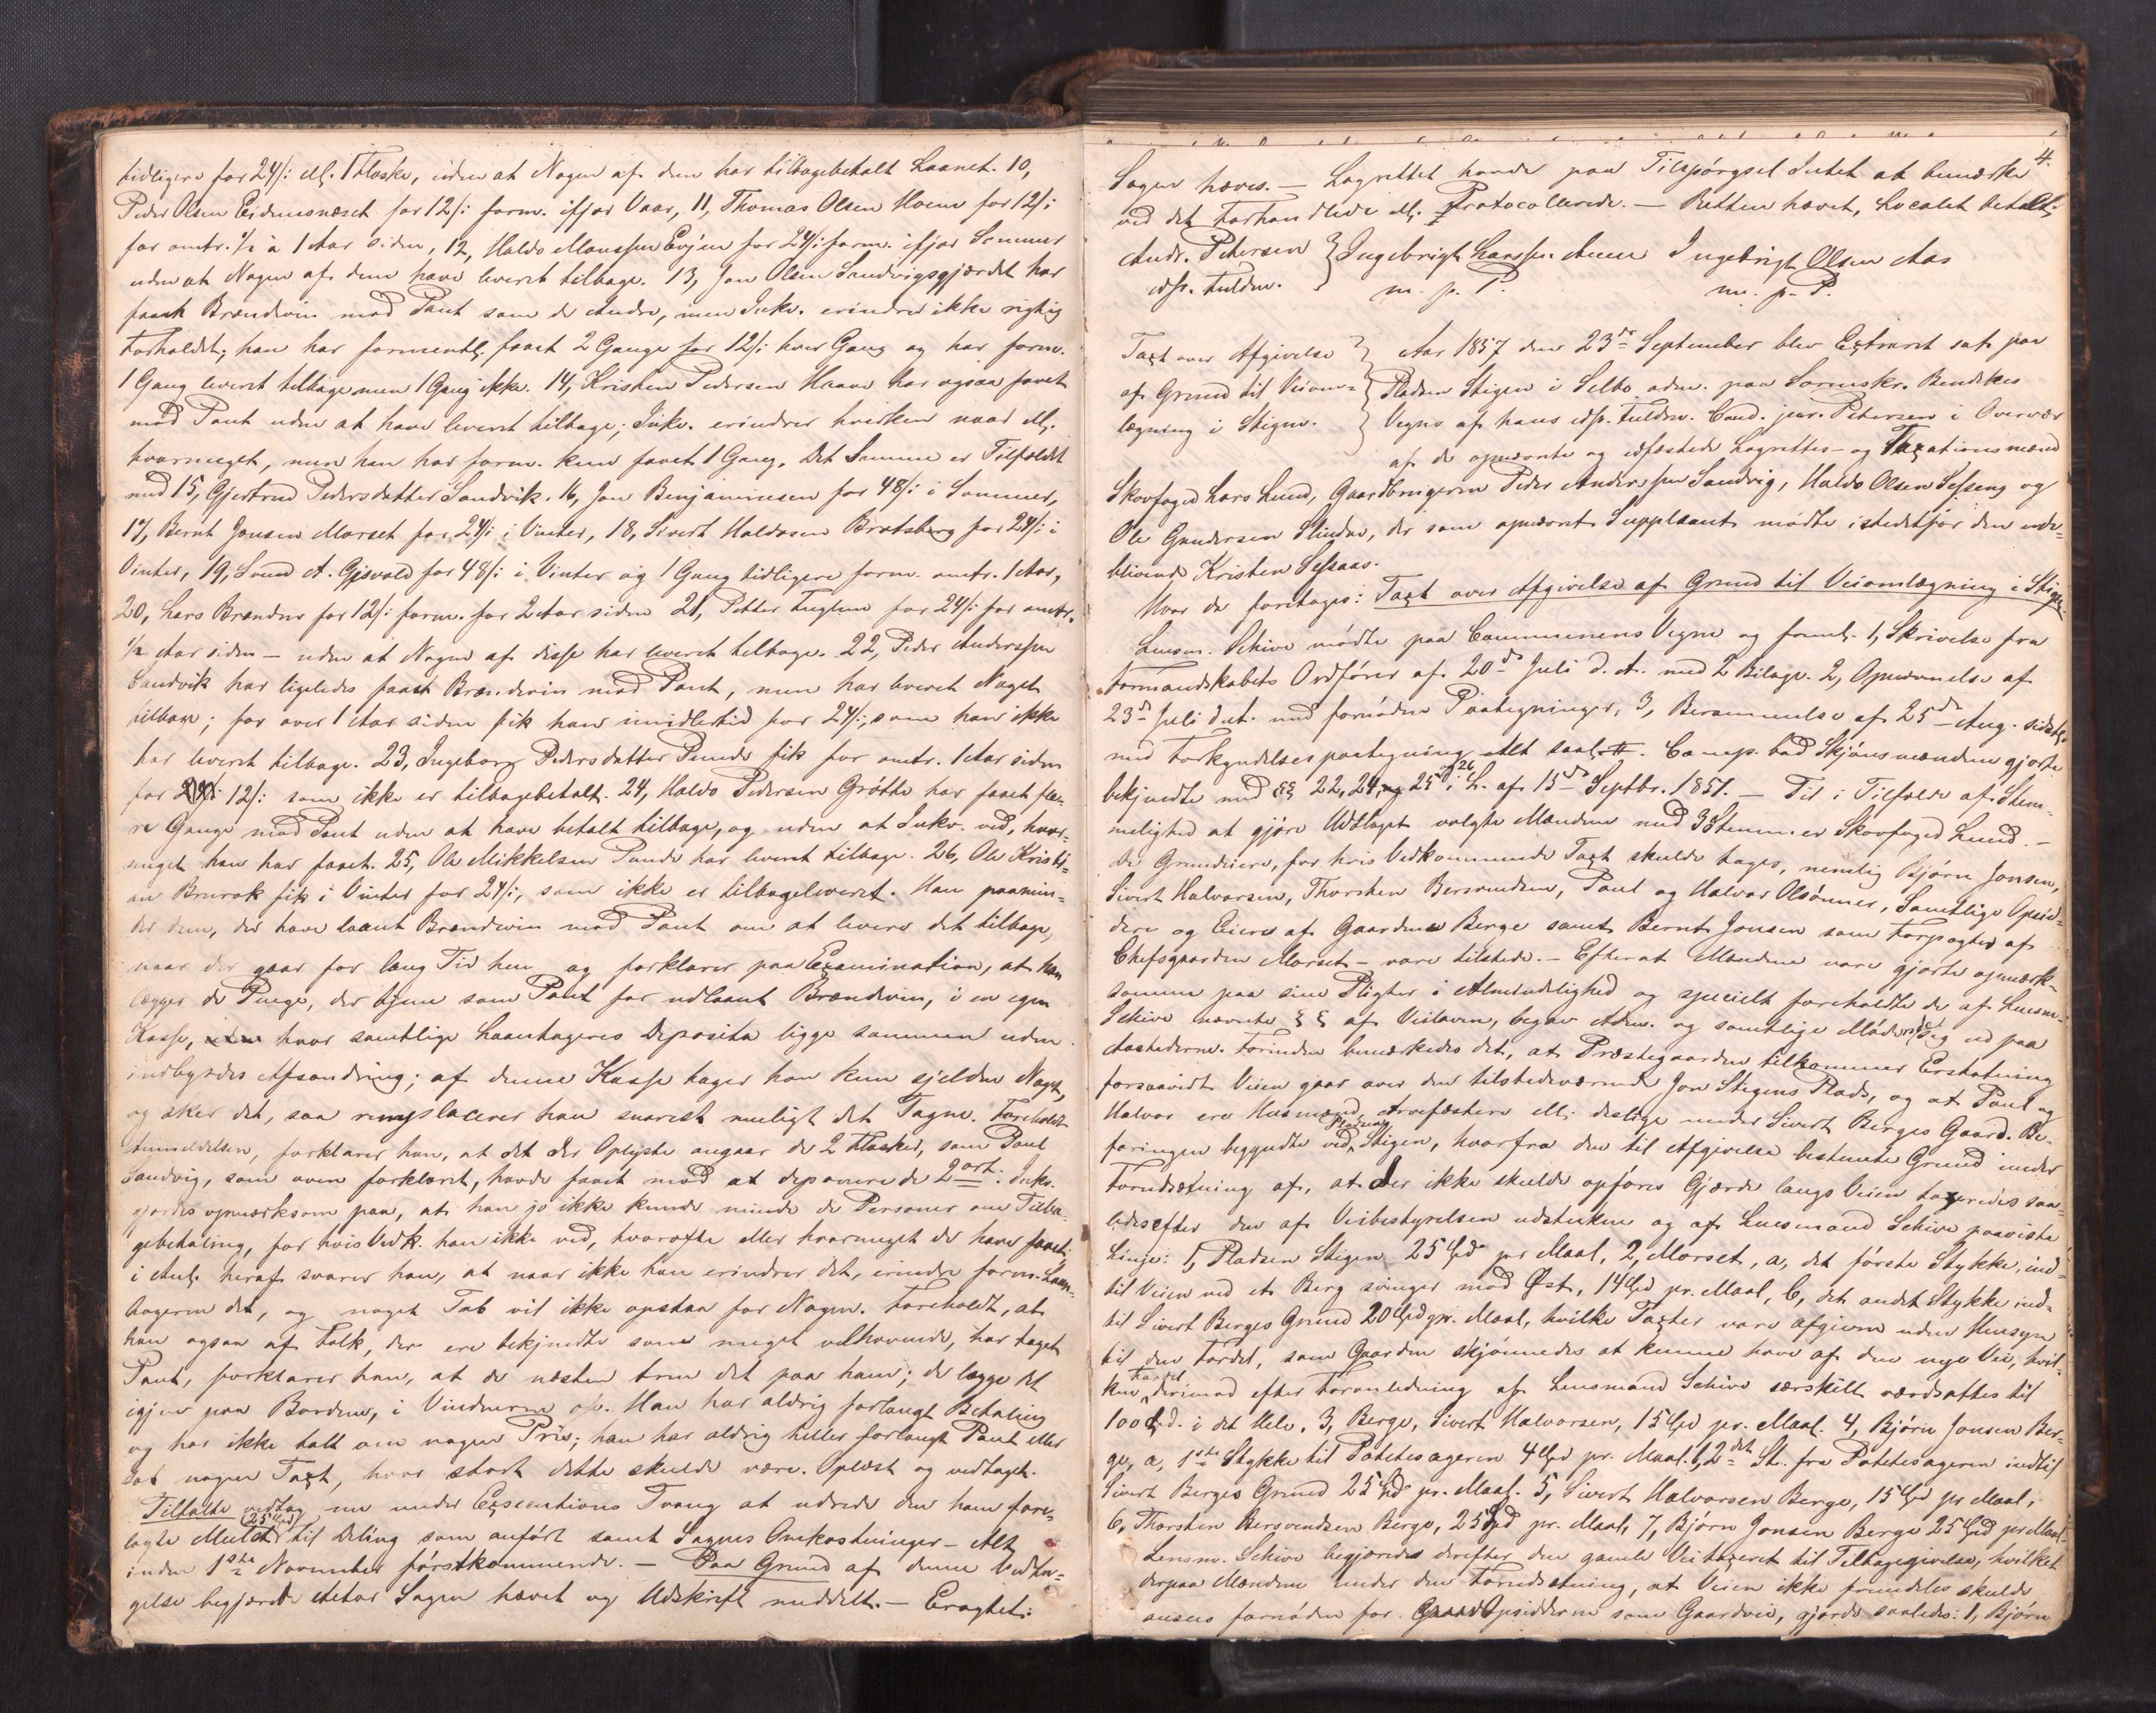 tidligere for 24/: ell. 1 Flaske, uden at Nogen af dem har tilbagebetalt Laanet. 10,
Peder Olsen Eidemsnæset for 12/: form. ifjor Vaar, 11, Thomas Olsen Moen for 12/:
for omtr. 1/2 à 1 Aar siden, 12, Haldo Monssen Evjen for 24/: form. ifjor Sommer
uden at Nogen af dem have leveret tilbage. 13, Jon Olsen Sandvigsgjærdet har
faaet Brændevin mod Pant som de Andre, men Inkv. erindrer ikke rigtig
Forholdet; han har formentl. faaet 2 Gange for 12/: hver Gang og har form.
1 Gang leveret tilbage men 1 Gang ikke. 14, Kristen Pedersen Haave har ogsaa faaet
mod Pant uden at have leveret tilbage; Inkv. erindrer hverken naar ell.
hvormeget, men han har form. kun faaet 1 Gang. Det Samme er Tilfældet
med 15, Gjertrud Pedersdatter Sandvik. 16, Jon Benjaminsen for 48/: i Sommer,
17, Bernt Jonsen Morset for 24/: i Vinter, 18, Sivert Haldosen Bratsberg for 24/: i
Vinter, 19, Svend A. Gjsvold for 48/: i Vinter og 1 Gang tidligere form. omtr. 1 Aar,
20, Lars Brænden for 12/: form. for 2 Aar siden 21, Petter Fuglem for 24/: for omtr.
1/2 Aar siden – uden at Nogen af disse har leveret tilbage. 22, Peder Anderssen
Sandvik har ligeledes faaet Brændevin mod Pant, men har leveret Noget
tilbage; for over 1 Aar siden fik han imidlertid for 24/:, som han ikke
har leveret tilbage. 23, Ingeborg Pedersdatter Punde fik for omtr. 1 Aar siden
for 12/: som ikke er tilbagebetalt. 24, Haldo Pedersen Grøtte har faaet fle-
re Gange mod Pant uden at have betalt tilbage, og uden at Inkv. ved, hvor-
meget han har faaet. 25, Ole Mikkelsen Punde har leveret tilbage. 26, Ole Kristi-
an Brurok fik i Vinter for 24/:, som ikke er tilbageleveret. Han paamin-
der dem, der have laant Brændevin mod Pant om at levere det tilbage,
naar der gaar for lang Tid hen og forklarer paa Examination, at han
lægger de Penge, der tjene som Pant for udlaant Brændevin, i en egen
Kasse, hvor samtlige Laantageres Deposita ligge sammen uden
indbyrdes Afsondring; af denne Kasse tager han kun sjelden Noget,
og sker det, saa remplacerer han snarest muligt det Tagne. Foreholdt
Anmeldelsen, forklarer han, at det der Oplyste angaar de 2 Flasker, som Paul
Sandvig, som oven forklaret, havde faaet mod at deponere de 2 ort. Inkv.
gjordes opmærksom paa, at han jo ikke kunde minde de Personer om Tilba-
gebetaling, for hvis Vedk. han ikke ved, hvorofte eller hvormeget de have faaet;
i Anl. heraf svarer han, at naar ikke han erindrer det, erindre form. Laan-
tageren det, og noget Tab vil ikke opstaa for Nogen. Foreholdt, at
han ogsaa af Folk, der ere bekjendte som meget velhavende, har taget
Pant, forklarer han, at de næsten trine det paa ham; de lægge det
igjen paa Bordene, i Vinduerne o/s. Han har aldrig forlangt Betaling
og har ikke talt om nogen Pris; han har aldrig heller forlangt Pant eller
sat nogen Taxt, hvor stort dette skulde være. Oplæst og vedtaget.
Tiltalte vedtog nu under Executions Tvang at udrede den ham fore-
lagte Mulct (25 Spd) til Deling som anført samt Sagens Omkostninger – Alt
inden 1ste November førstkommende. – Paa Grund af denne Vedta-
gelse begjærede Actor Sagen hævet og Udskrift meddelt. – Eragtet:
4.
Sagen hæves. – Lagrettet havde paa Tilspørgsel Intet at bemærke
ved det Forhandlede ell. Protocollerede. – Retten hævet, Localet betalt.
Andr. Petersen Ingebrigt Larssen Aune Ingebrigt Olsen Aas
edsv. Fuldm. m. p. P. m. p. P.
Taxt over Afgivelse Aar 1857 den 23de September blev Extraret sat paa
af Grund til Veiom- Pladsen Stigen i Selbo adm. paa Sorenskr. Bendikes
lægning i Stigen. Vegne af hans edsv. Fuldm. Cand. jur. Petersen i Overvær
af de opnævnte og edfæstede Lagrettes- og Taxationsmænd
Skovfoged Lars Lund, Gaardbrugerne Peder Anderssen Sandvig, Haldo Olsen Sesseng og
Ole Gundersen Slinden, der som opnævnt Suppleant mødte istedetfor den ude-
blivende Kristen Sessaas.
Hvor da foretoges: Taxt over Afgivelse af Grund til Veiomlægning i Stigen
Lensm. Schive mødte paa Communens Vegne og freml. 1, Skrivelse fra
Formandskabets Ordfører af 20de Juli d. A. med 2 Bilage. 2, Opnævnelse af
23de Juli d. A. med fornødne Paategninger, 3, Berammelse af 25de Aug. sidstl.
med Forkyndelsespaategning. Alt saal. Comp. bad Skjønsmændene gjorte
bekjendte med §§ 22, 24, 25 og 26 i L. af 15de Septbr. 1851. – Til i Tilfælde af Stem-
melighed at gjøre Udslaget valgte Mændene med 3 Stemmer Skovfoged Lund. –
De Grundeiere, for hvis Vedkommende Taxt skulde tages, nemlig Bjørn Jonsen,
Sivert Halvorsen, Thorsten Bersvendsen, Paul og Halvor Olsønner, Samtlige Opsid-
dere og Eiere af Gaarden Berge samt Bernt Jonsen som Forpagter af
Chefsgaarden Morset – vare tilstede. – Efterat Mændene vare gjorte opmærk-
somme paa sine Pligter i Almindelighed og specielt foreholdte de af Lensm.
Schive nævnte §§ af Veiloven, begav Adm. og samtlige Mødende sig ud paa
Aastederne. Forinden bemærkedes det, at Præstegaarden tilkommer Erstatning
forsaavidt Veien gaar over den tilstedeværende Jon Stigens Plads, og at Paul og
Halvor ere Husmænd, Arvefæstere ell. deslige under Sivert Berges Gaard. Be-
faringen begyndte ved Pladsen Stigen, hvorfra den til Afgivelse bestemte Grund under
Forudsætning af, at der ikke skulde opføres Gjærde langs Veien taxeredes saa-
ledes efter den af Veibestyrelsen udstukne og af Lensmand Schive paaviste
Linje: 1, Pladsen Stigen 25 Spd pr Maal, 2, Morset, a, det første Stykke, ind-
til Veien ved et Berg svinger mod Øst, 14 Spd pr. Maal, b, det andet Stykke ind-
til Sivert Berges Grund 20 Spd pr. Maal, hvilke Taxter vare afgivne uden Hensyn
til den Fordel, som Gaarden skjønnedes at kunne have af den nye Vei, hvil-
ken Fordel derimod efter Foranledning af Lensmand Schive særskilt værdsattes til
100 Spd. i det Hele. 3, Berge, Sivert Halvorsen, 15 Spd pr. Maal. 4, Bjørn Jonsen Ber-
ge, a, 1ste Stykke til Potetesageren 4 Spd pr. Maal. b, 2det St. fra Potetesageren indtil
Sivert Berges Grund 25 Spd pr. Maal. 5, Sivert Halvorsen Berge, 15 Spd pr Maal,
6, Thorsten Bersvendsen Berge, 25 Spd pr. Maal, 7, Bjørn Jonsen Berge 25 Spd pr Maal
Lensm. Schive begjærede derefter den gamle Vei taxeret til Tilbagegivelse, hvilket
derpaa Mændene under den Forudsætning, at Veien ikke fremdeles skulde
ansees fornøden for Opsidderne som Gaardvei, gjorde saaledes: 1, Bjørn